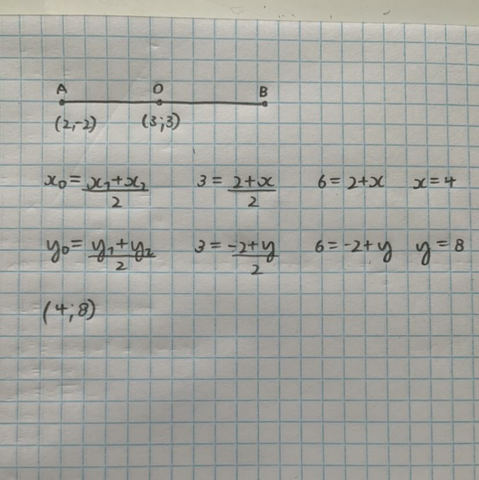 A O B
(2,-2) (3;3)
x₀ = x₁+x₂/2 3 = 2+x/2 6 = 2+x x = 4
y₀ = y₁+y₂/2 3 = -2+y/2 6 = -2+y y = 8
(4;8)